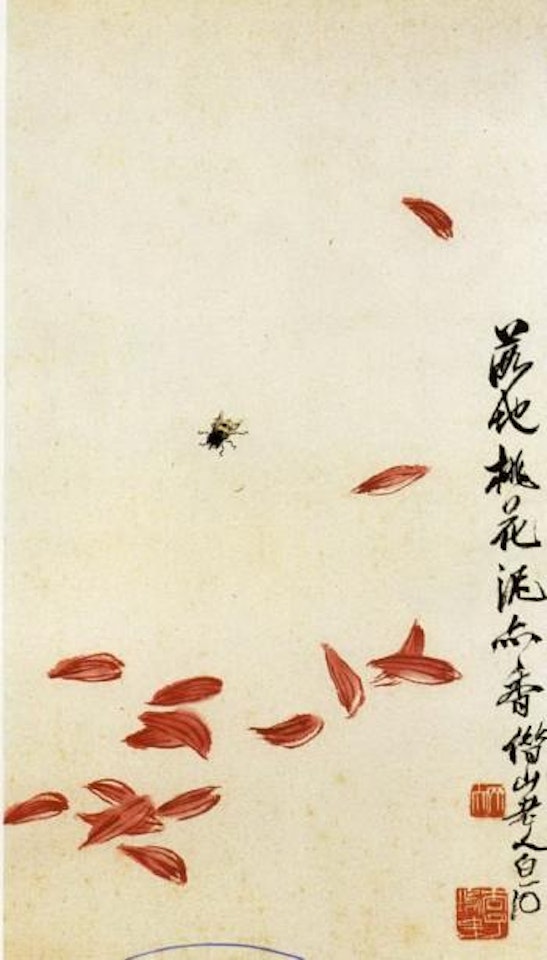 落地桃花泥亦香借山老人白石